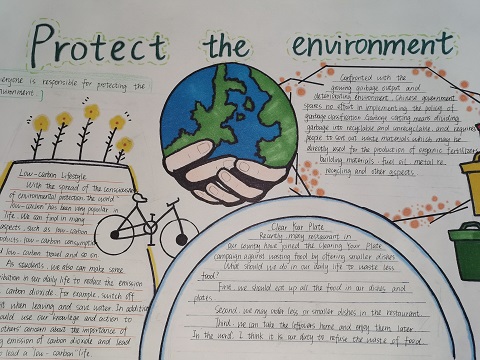 Protect the environment
everyone is responsible for protecting the
environment.]
Low-carbon Lifestyle
With the spread of the consciousness
of environmental protection the world
low-carbon has been very popular in
life. We can find in many
aspects, such as low-carbon
products low-carbon consumption
low-carbon travel and so on.
As students, we also can make some
contribution in our daily life to reduce the emission
carbon dioxide. For example, switch off
when leaving and save water. In addition
should use our knowledge and action to
others concern about the importance of
emission of carbon dioxide and lead
lead a low-carbon life.
Confronted with the
growing garbage output and
deteriorating environment, Chinese government
spares no effort in implementing the policy of
garbage classification. Garbage sorting means dividing
garbage into recyclable and unrecyclable, and requires
people to sort out waste materials which may be
directly used for the production of organic fertilizer
building materials, fuel oil, metal re
recycling and other aspects.
Clear Your Plate
Recently many restaurant in
our country have joined the Clearing Your Plate
campaign against wasting food by offering smaller dishes
What should we do in our daily life to waste less
food?
First, we should eat up all the food in our dishes and
plates.
Second, we may order less or smaller dishes in the restaurant.
Third, we can take the leftovers home and enjoy them later
In the word, I think it is our duty to refuse the waste of food.